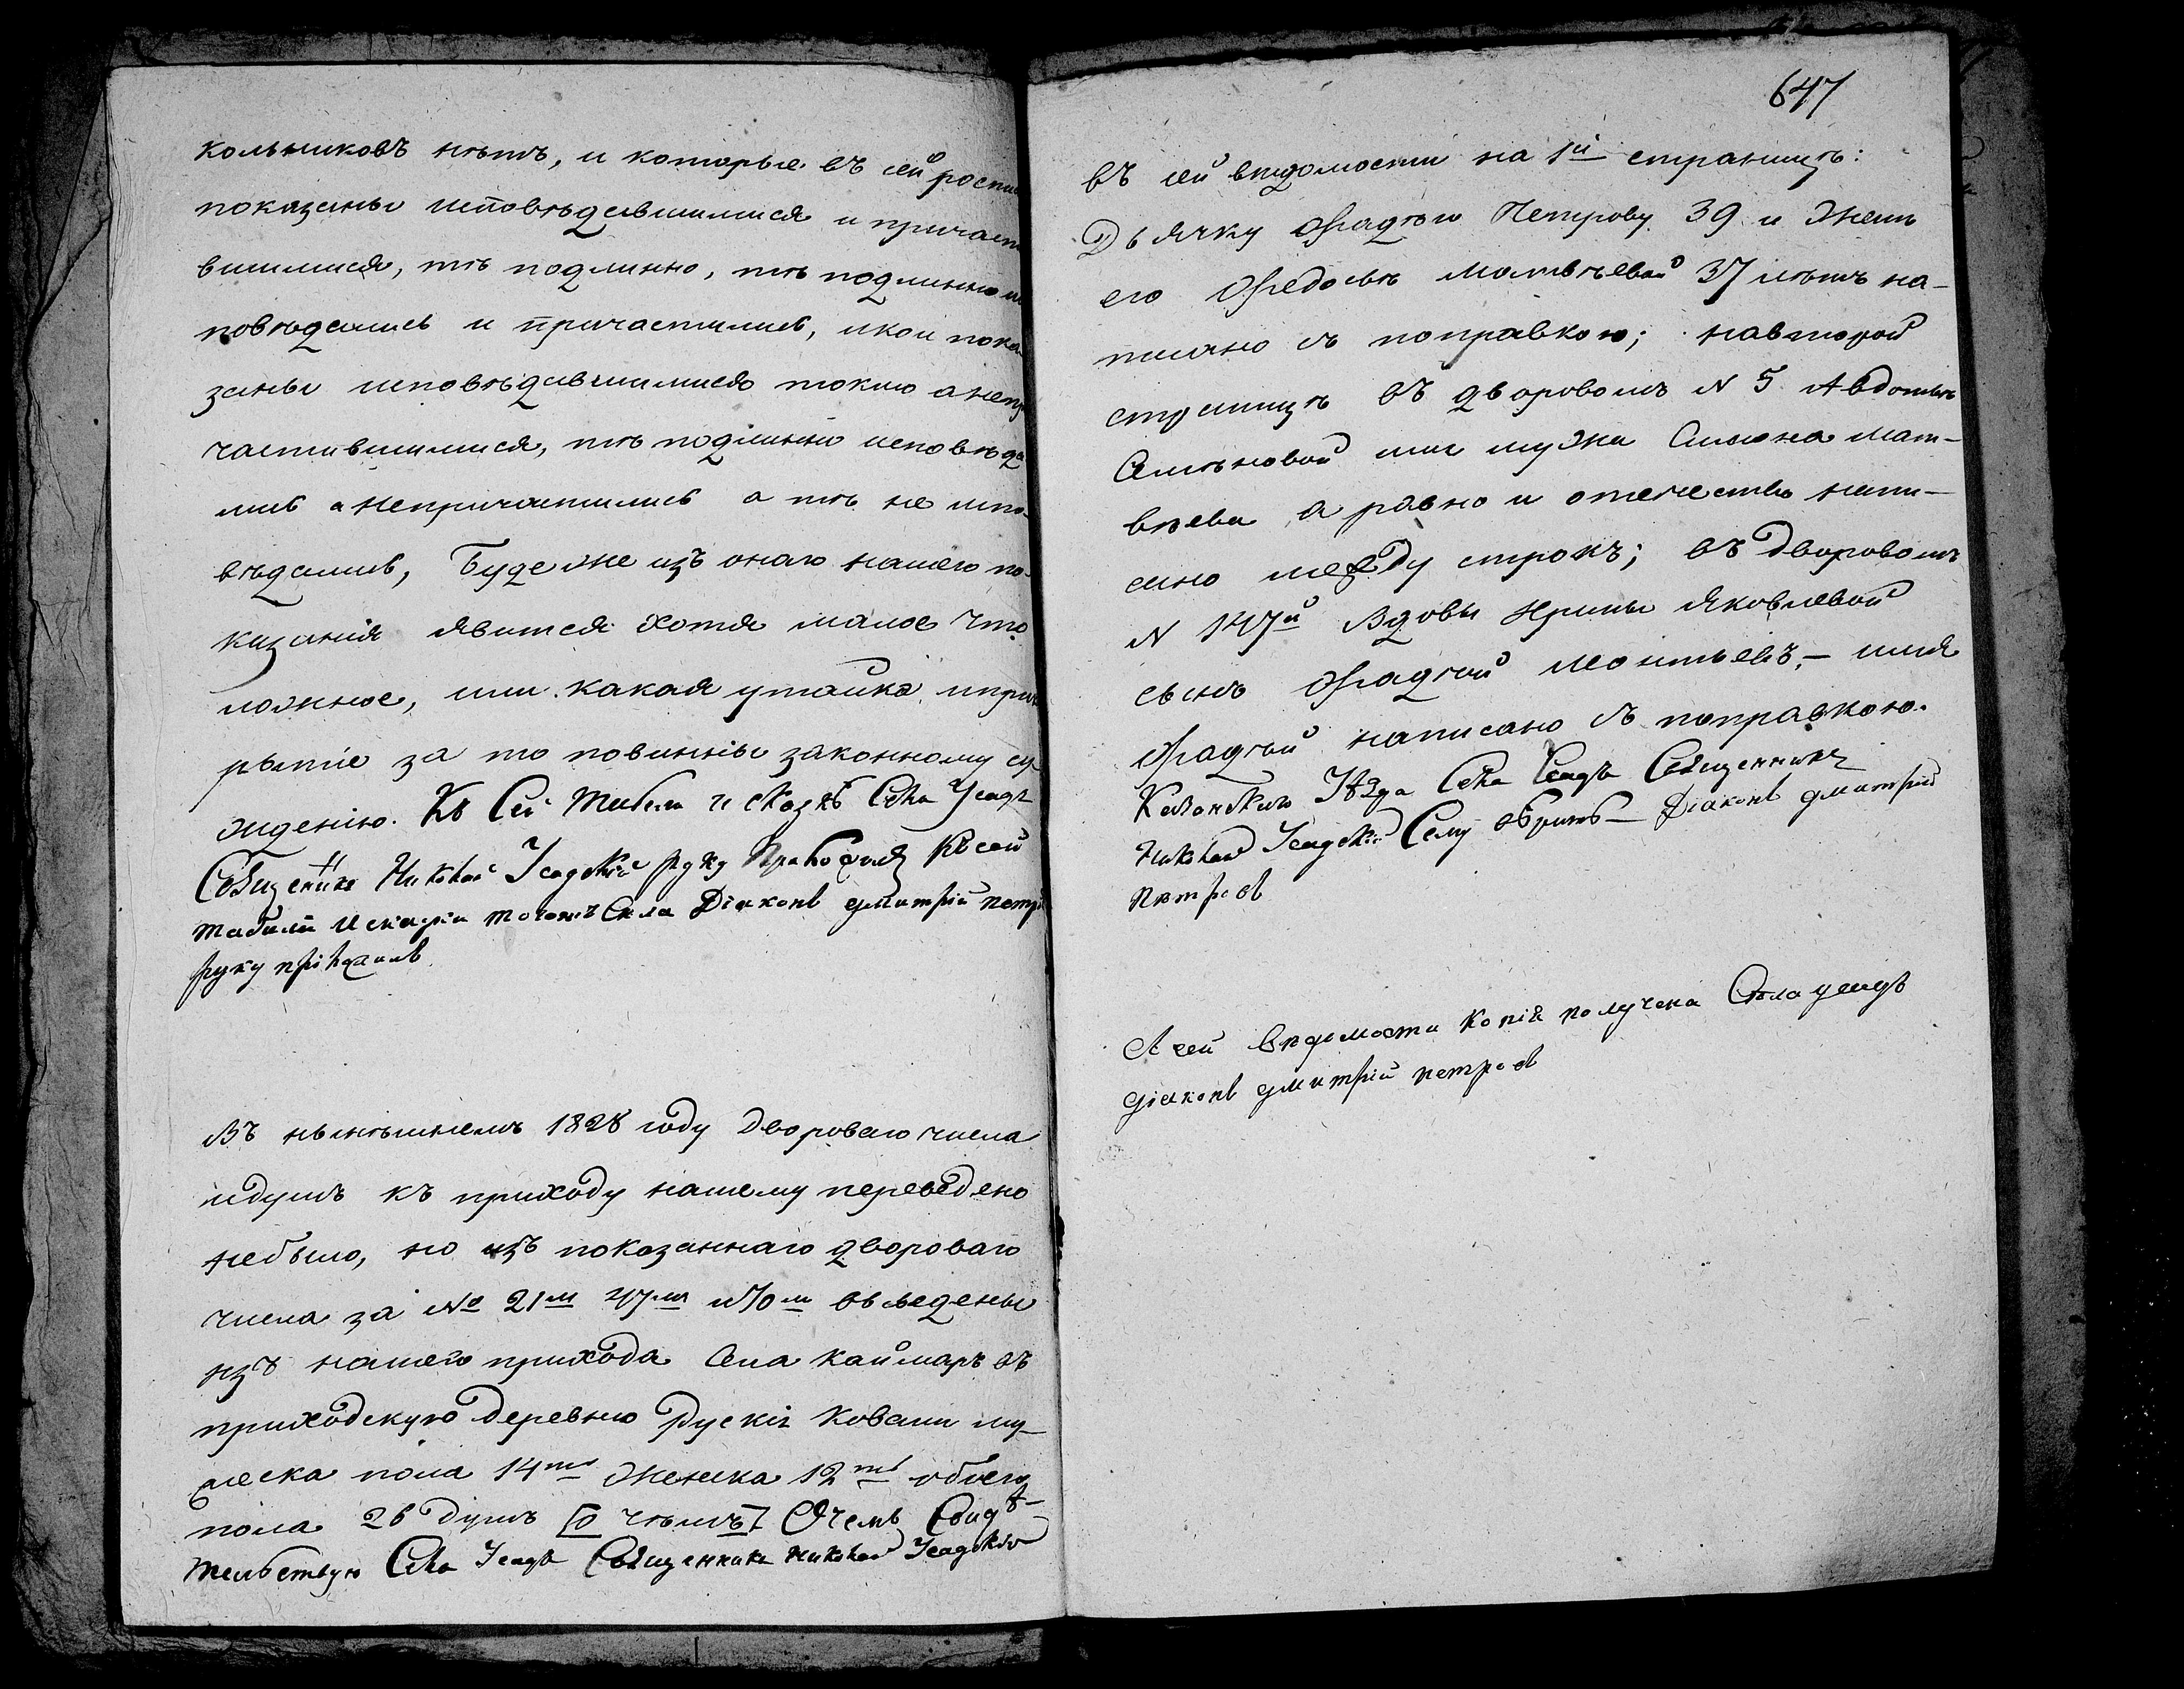 кольниковъ нѣтъ, и которые въ сей роспи
показаны исповѣдавшимися и причаст
вшимися, тѣ подлинно, тѣ подлинно и
повѣдались и причастились, икои пока
заны исповѣдавшимися токмо анепр
частившимися, тѣ подлинно исповѣда
лись анепричастились а тѣ не испо-
вѣдались, Буде же изъ онаго нашего по-
казанія явится хотя малое что
ложное, или какая утайка, ипри
рытіе за то повинны законному су
жденію. Къ Сей табели и сказкѣ Села Усадъ
Священникъ Николай Усадскій руку Приложилъ Ксей
табели исказки тогожъ Села Діаконъ дмитрій петр
руку пріложилъ
Въ нынѣшнемъ 1828 году Двороваго числа
идушъ къ приходу нашему переведено
небыло, но изъ показаннаго двороваго
числа за № 21м 47м и 70м выведены
изъ нашего прихода Села Каймаръ въ
приходскую Деревню Рускіе Ковали му-
жеска пола 14ть Женска 12ть обоего
пола 26 Душъ [о чѣмъ] О чемъ Свидѣ-
тельствую Села Усадъ Священникъ Николай Усадскій
647
въ сей вѣдомости на 1й страницѣ:
Дьячку Фадѣю Петрову 39 и Женѣ
его Федосьѣ Матвѣевой 37 лѣтъ на-
писано съ поправкою; навторой
страницѣ въ дворовомъ N 5 Авдотьѣ
Семѣновой имя мужа Симеона Мат-
вѣева а равно и отечество напи-
сано между строкъ; въ Дворовомъ
N 147й Вдовы Ирины Яковлевой
сынъ Фадѣй Леонтьевъ,- имя
Фадѣй написано съ поправкою.
Казанскаго Уѣзда Села Усадъ Священникъ
Николай Усадскій Сему вѣритъ- Діаконъ дмитрій
Петровъ
Асей вѣдомости Копія получена Села усадъ
діаконъ дмитрій петровъ